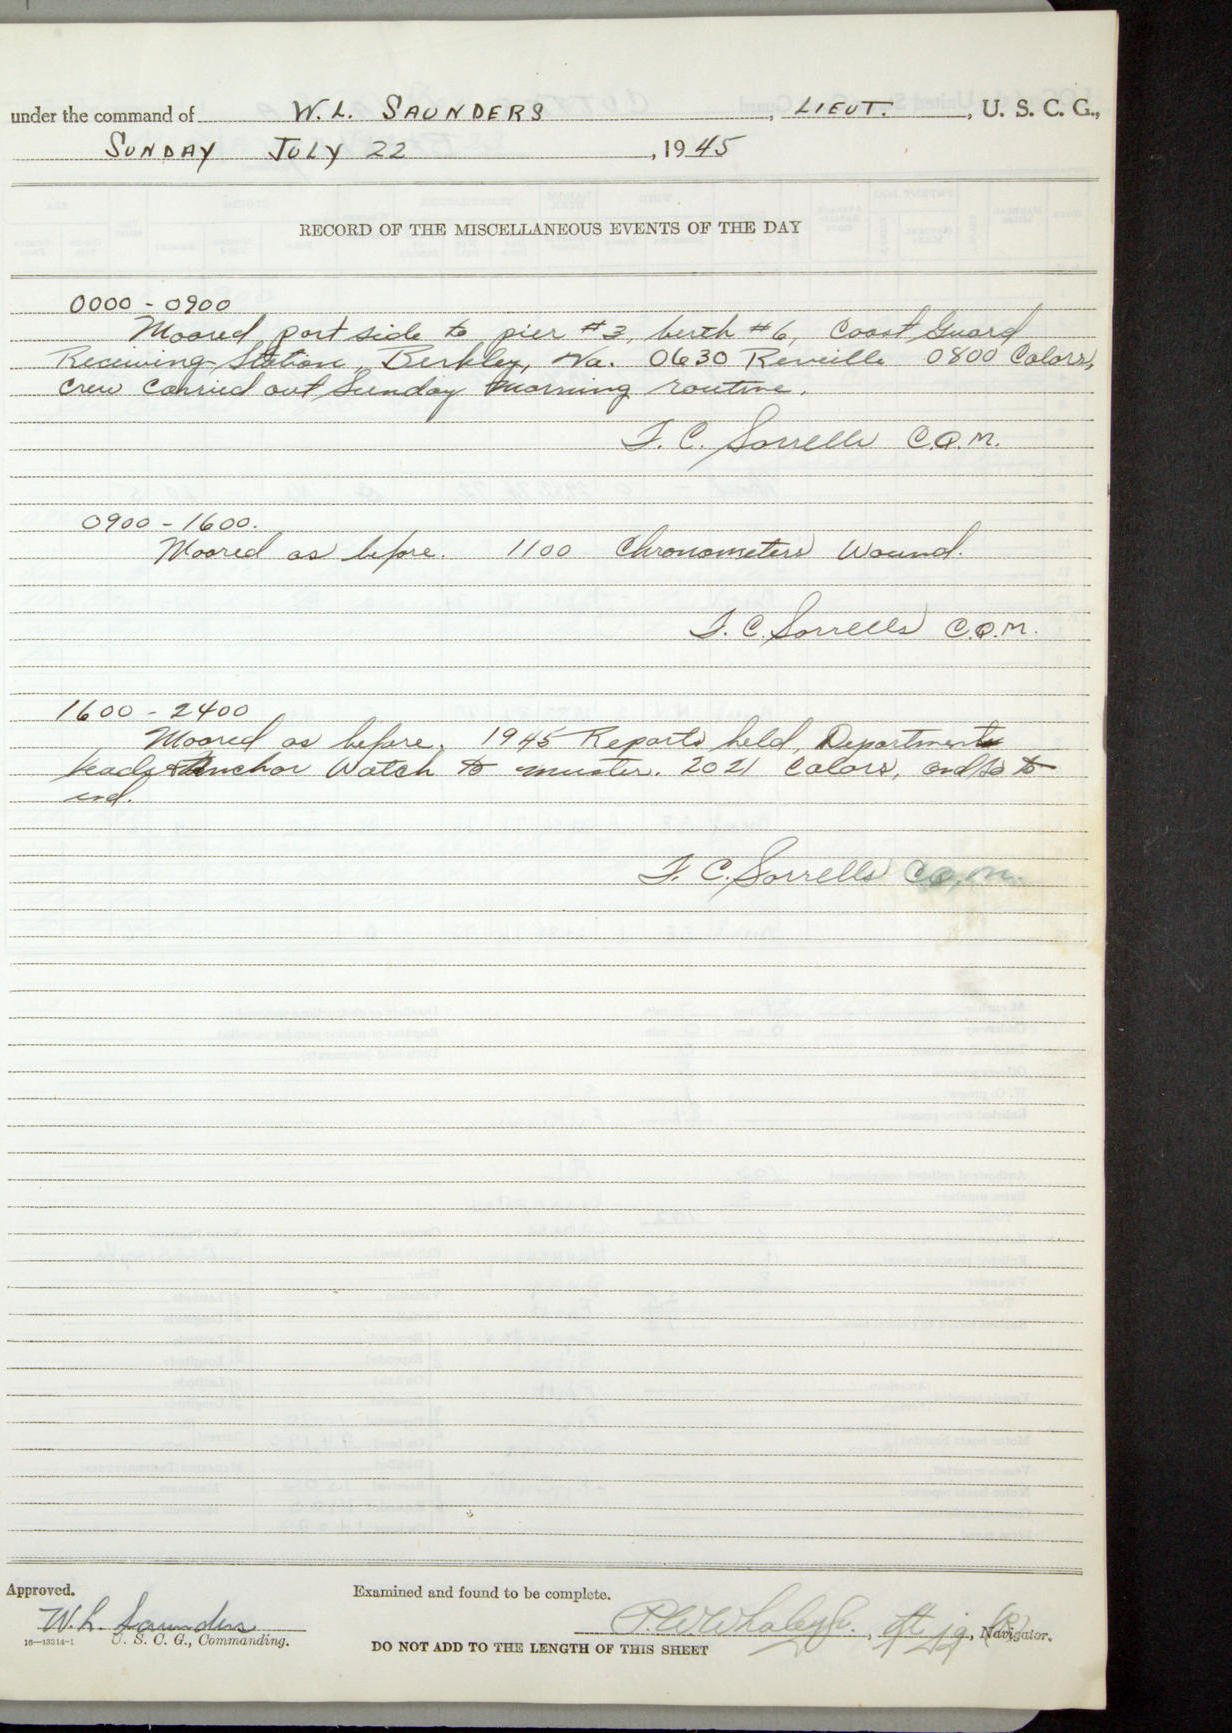 under the command of W. L. SAUNDERS, LIEUT., U. S. C. G.,
SUNDAY JULY 22, 1945
RECORD OF THE MISCELLANEOUS EVENTS OF THE DAY
0000 - 0900
Moored port side to pier #3, berth #6, Coast Guard
Receiving Station, Berkley, Va. 0630 Reveille 0800 Colors,
Crew carried out Sunday morning routine.
T. C. Sorrells C.Q.M.
0900 - 1600.
Moored as before. 1100 Chronometers Wound.
T. C. Sorrells C.Q.M.
1600 - 2400
Moored as before. 1945 Reports held, Department
heads & Anchor Watch to muster. 2021 Colors, and so to
end.
T. C. Sorrells C.Q.M.
Approved.
Examined and found to be complete.
W. L. Saunders
U. S. C. G., Commanding.
P.W. Whaley Jr., Lt jg, Navigator.
16—13314-1
DO NOT ADD TO THE LENGTH OF THIS SHEET